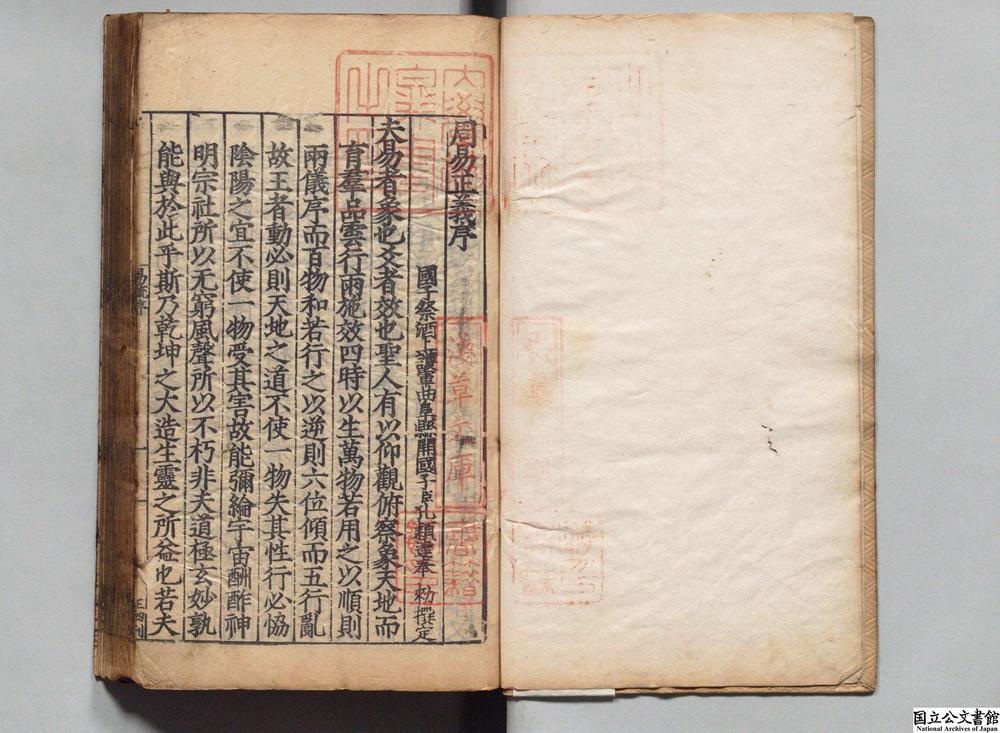 周易正義序
國子祭酒上護軍曲阜縣開國子臣孔穎達奉 勑撰定
夫易者象也爻者效也聖人有以仰觀俯察象天地而
育羣品雲行雨施效四時以生萬物若用之以順則
兩儀序而百物和若行之以逆則六位傾而五行亂
故王者動必則天地之道不使一物失其性行必恊
陰陽之宜不使一物受其害故能彌綸宇宙酬酢神
明宗社所以无窮風聲所以不朽非夫道極玄妙孰
能與於此乎斯乃乾坤之大造生靈之所益也若夫
淺草文庫
書籍
国立公文書館
National Archives of Japan